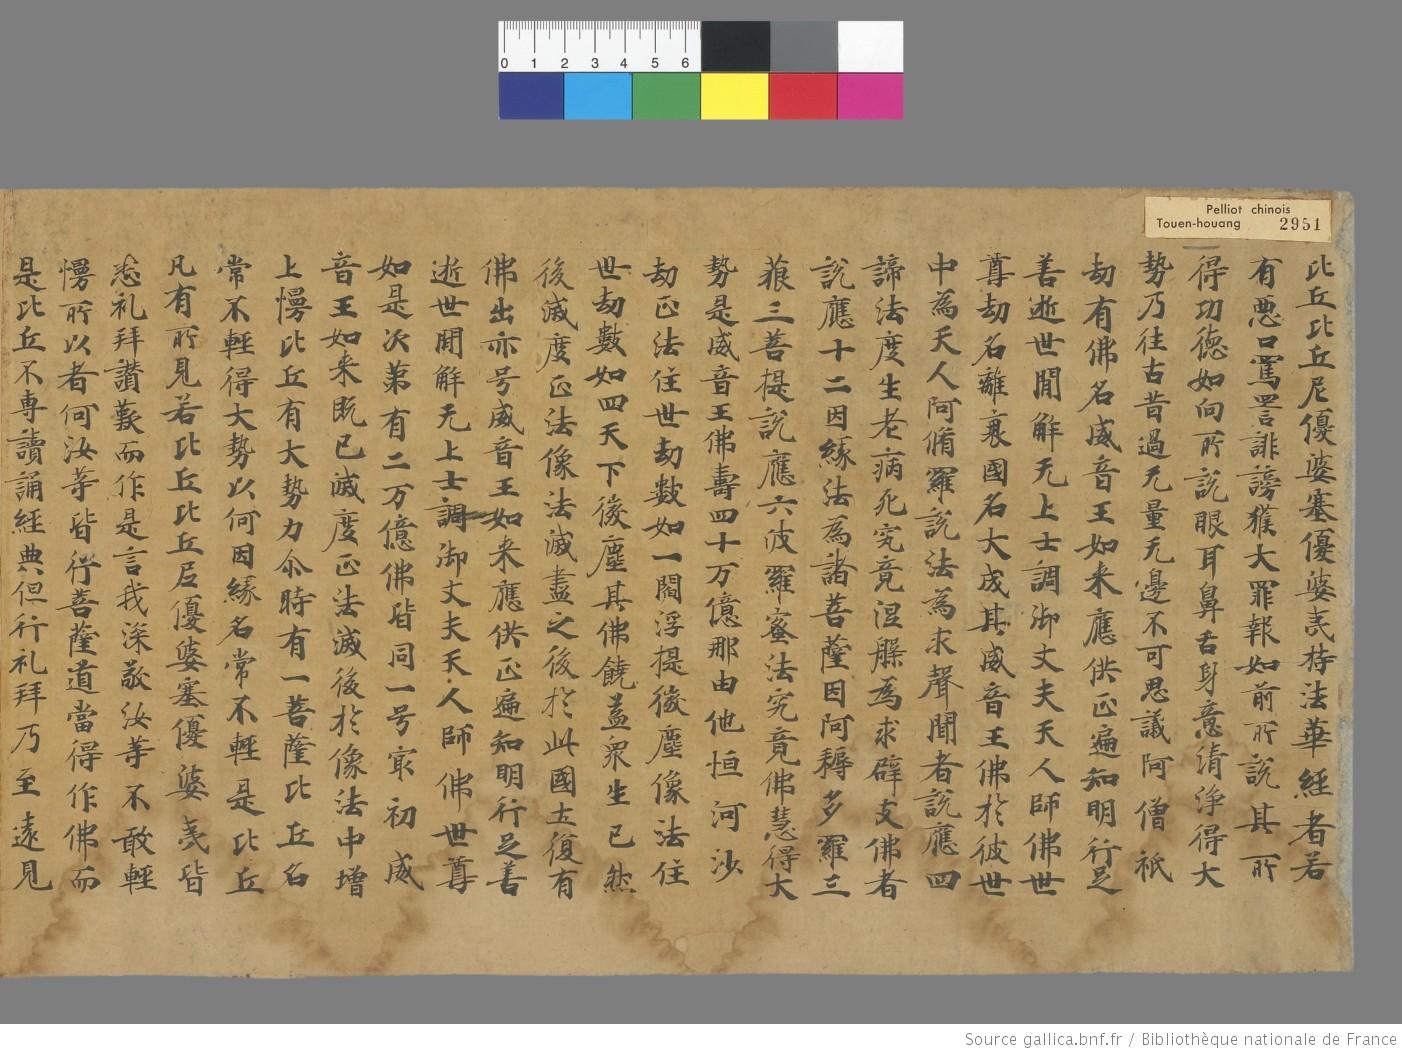 0 1 2 3 4 5 6
Pelliot chinois
Touen-houang 2951
比丘比丘尼優婆塞優婆夷持法華經者若
有惡口罵詈誹謗獲大罪報如前所說其所
得功德如向所說眼耳鼻舌身意清淨得大
勢乃往古昔過无量无邊不可思議阿僧祇
劫有佛名威音王如来應供正遍知明行足
善逝世間解无上士調御丈夫天人師佛世
尊劫名離衰國名大成其威音王佛於彼世
中為天人阿脩羅說法為求聲聞者說應四
諦法度生老病死究竟涅槃為求辟支佛者
說應十二因緣法為諸菩薩因阿耨多羅三
藐三菩提說應六波羅蜜法究竟佛慧得大
勢是威音王佛壽四十万億那由他恒河沙
劫正法住世劫數如一閻浮提微塵像法住
世劫數如四天下微塵其佛饒益眾生已然
後滅度正法像法滅盡之後於此國土復有
佛出亦号威音王如来應供正遍知明行足善
逝世間解无上士調御丈夫天人師佛世尊
如是次第有二万億佛皆同一号㝡初威
音王如来既已滅度正法滅後於像法中增
上慢比丘有大勢力尒時有一菩薩比丘名
常不輕得大勢以何因緣名常不輕是比丘
凡有所見若比丘比丘尼優婆塞優婆夷皆
悉礼拜讚歎而作是言我深敬汝等不敢輕
慢所以者何汝等皆行菩薩道當得作佛而
是比丘不專讀誦經典但行礼拜乃至遠見
Source gallica.bnf.fr / Bibliothèque nationale de France